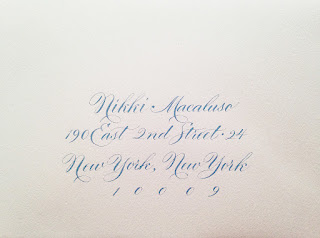 Nikki Macaluso
190 East 2nd Street · 24
New York, New York
10009